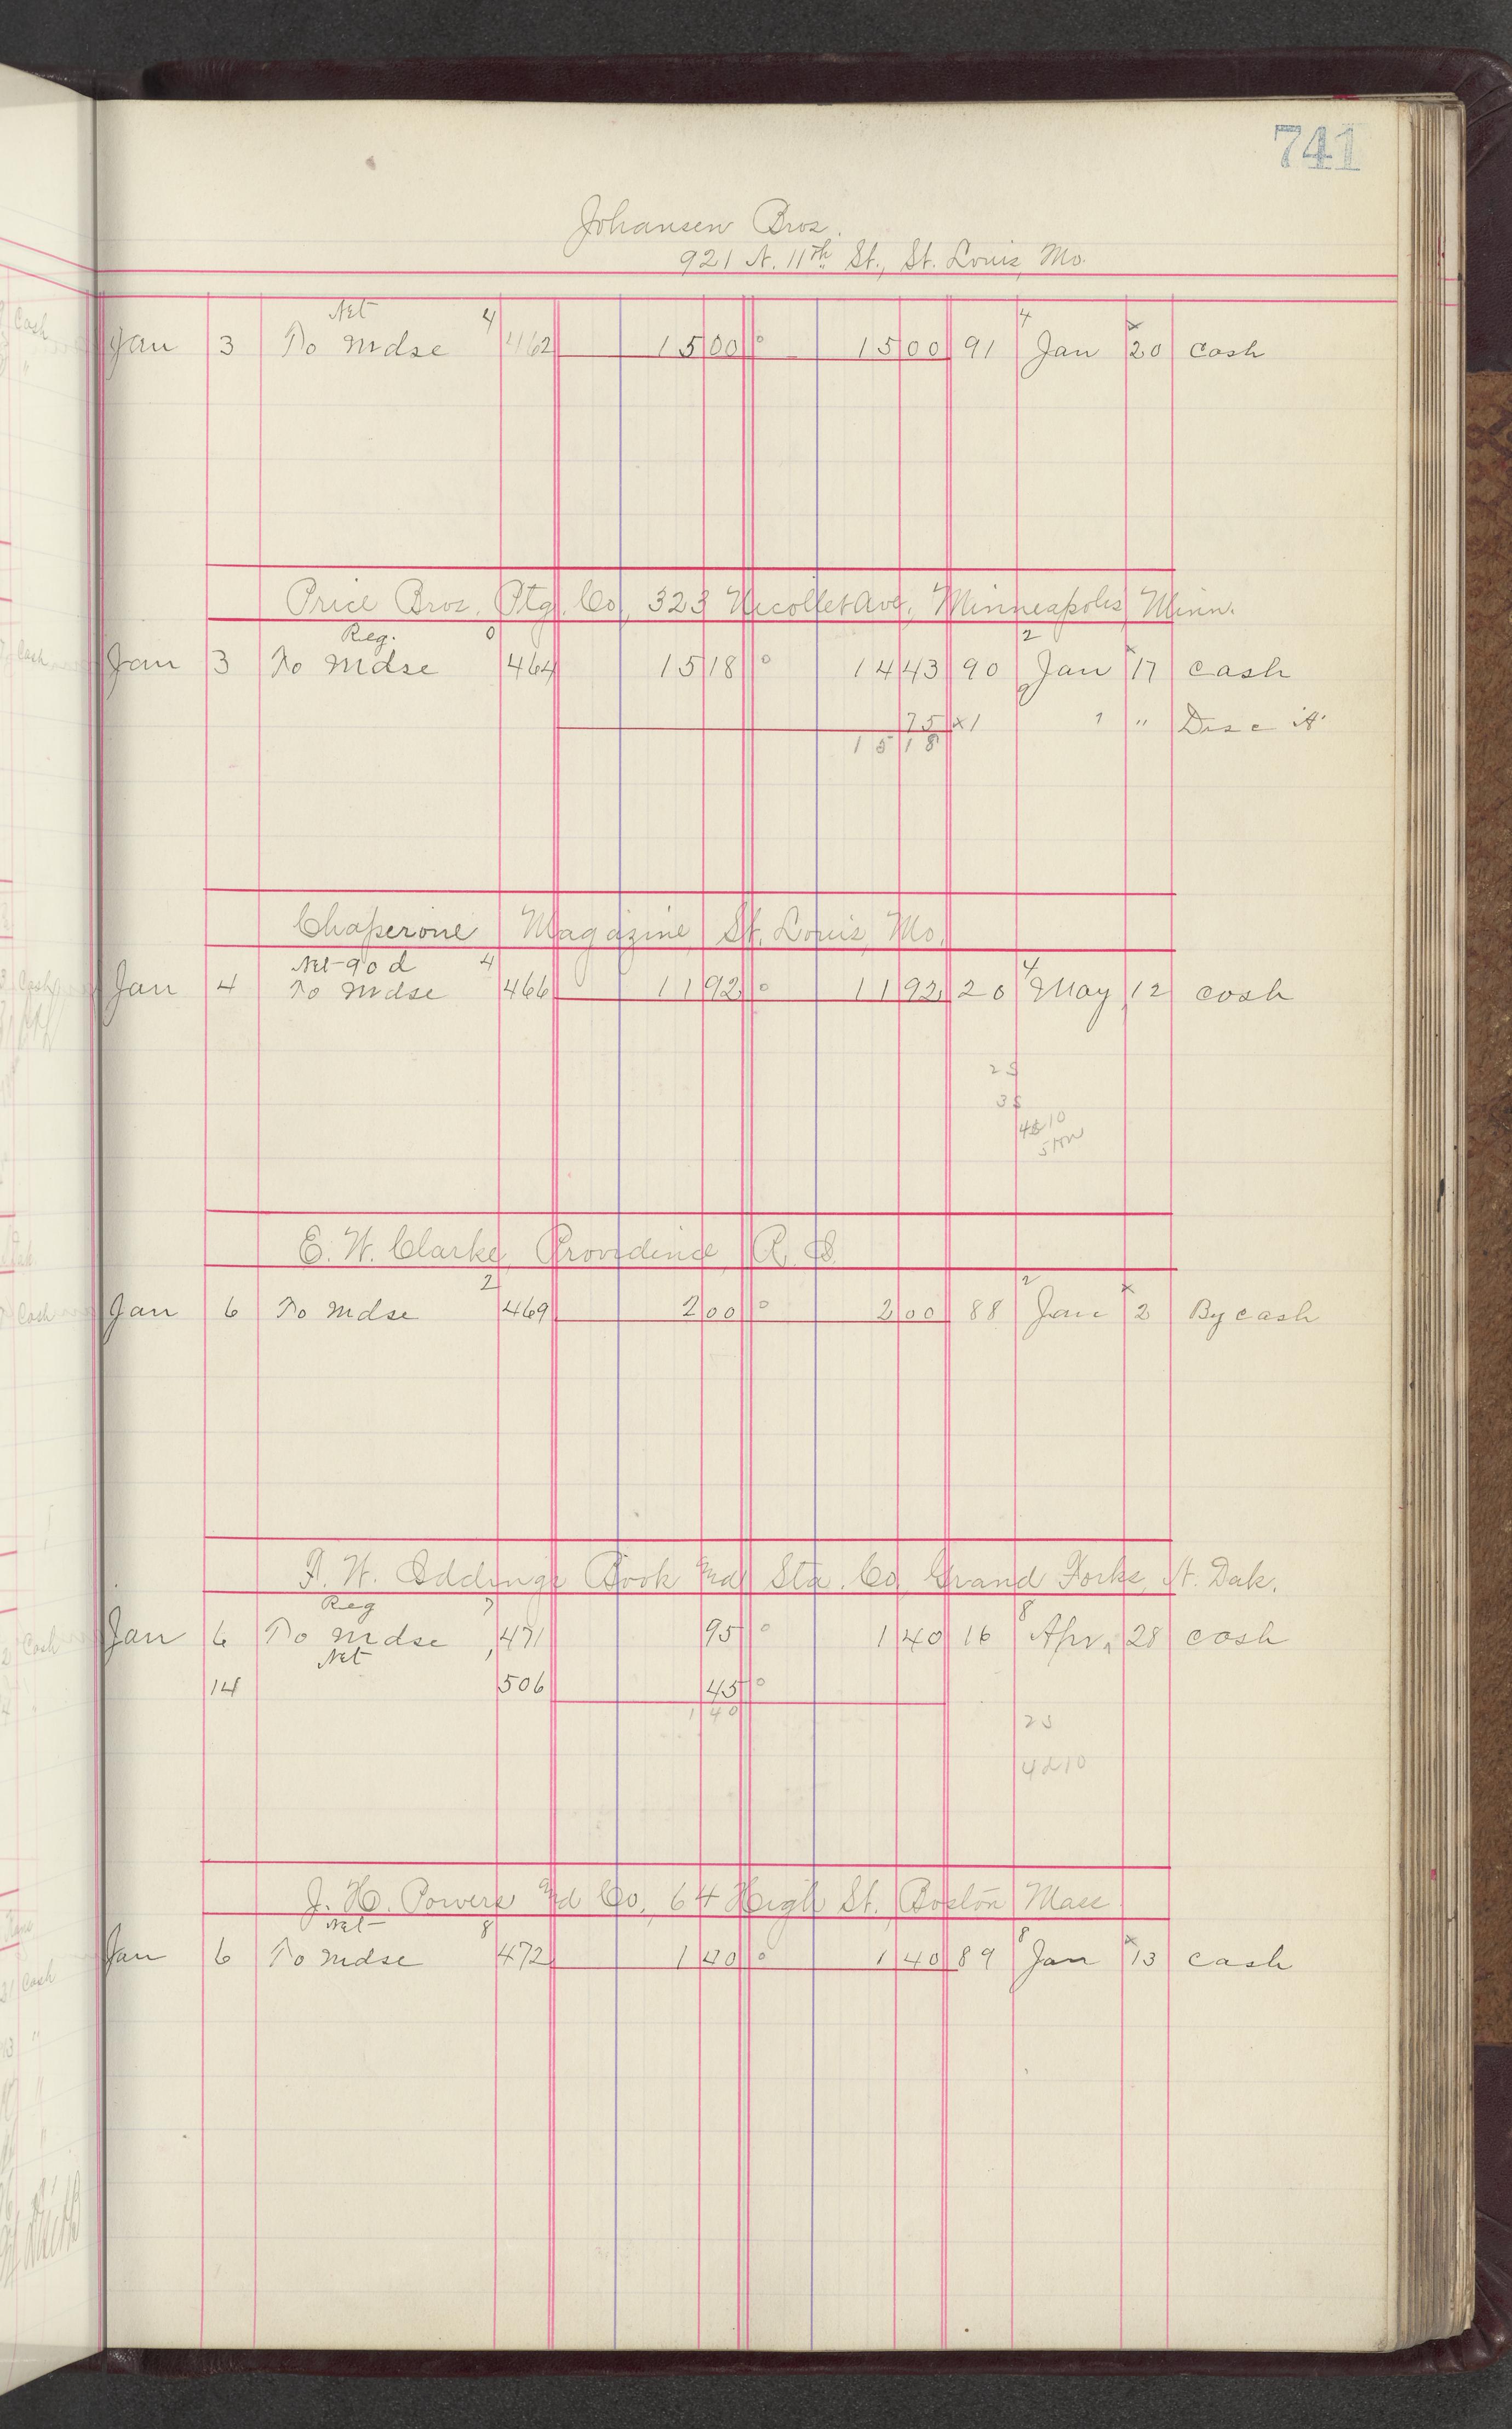 741
Johansen Bros.
921 N. 11th St., St. Louis, Mo.
Net 4 4 x
Jan 3 To Mdse 462 15 00 0 15 00 91 Jan 20 Cash
Price Bros. Ptg. Co, 323 Nicollet Ave, Minneapolis Minn.
Reg. 0 2
Jan 3 To Mdse 464 15 18 0 14 43 90 Jan 17 cash
75 x1 " Disc
15 18
Chaperone Magazine St. Louis, Mo.
Net 90 d 4 4
Jan 4 To Mdse 466 11 92 0 11 92 20 May 12 cash
25
35
E. W. Clarke, Providence R. I.
2 2 x
Jan 6 To Mdse 469 2 00 0 2 00 88 Jan 2 By cash
Book and Sta. Co, Grand Forks, N. Dak.
Reg 7 8
Jan 6 To Mdse 471 95 0 1 40 16 Apr. 28 cash
Net
14 506 45 0
1 40
25
J. H. Powers & Co, 64 High St. Boston Mass
Net 8 8 x
Jan 6 To Mdse 472 1 40 0 1 40 89 Jan 13 cash